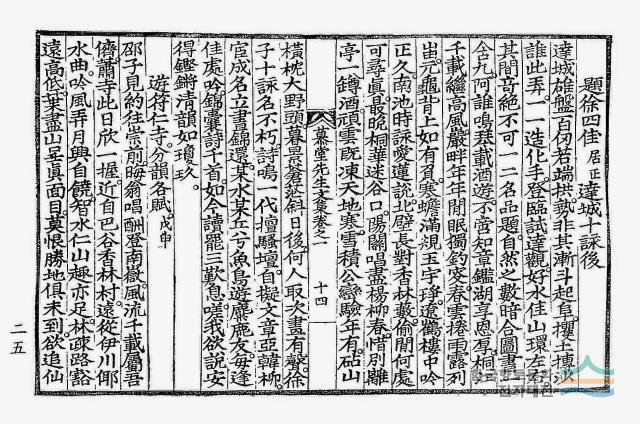 題徐四佳居正達城十詠後
達城雄盤百仞岩端拱勢非其漸斗起阜攖土摶沙
誰此弄一一造化手登臨試達觀好水佳山環左右
其間奇絶不可一二名品題自然之數暗合圖書
舍九阿誰鳴琴載酒遊不管知章鑑湖享恩厚桐
千載繼高風巖畔年年閒眠獨釣叟春雲捲雨露列
出元龜背上如有負寒蟾滿規玉宇琤還鶴樓中吟
正久南池時詠愛蓮說北壁長對香林藪偷閒何處
可尋眞最晩桐華迷谷口陽關唱盡楊柳春惜別離
亭一罇酒頑雲旣凍天地寒雪積公巒驗年有砧山
慕堂先生文集卷之一
十四
橫枕大野頭暮景蒼茫斜日後何人取次畫有聲徐
子十詠名不朽詩鳴一代擅騷壇自擬文章亞韓柳
宦成名立書錦還某水某丘兮魚鳥遊麋鹿友每逢
佳處吟錦囊詩千首如今讀罷三歎息嗟我欲說安
得鏗鏘清韻如瓊玖
遊符仁寺分韻各賦戊申
邵子見約往崇前晦翁唱酬登南嶽風流千載屬吾
儕蕭寺此日欣一握近自巴谷香林村遠從伊川倻
水曲吟風弄月興自饒智水仁山趣亦足林疎路豁
遠高低葉盡山呈眞面目莫恨勝地俱未到欲追仙
二五
전자대전